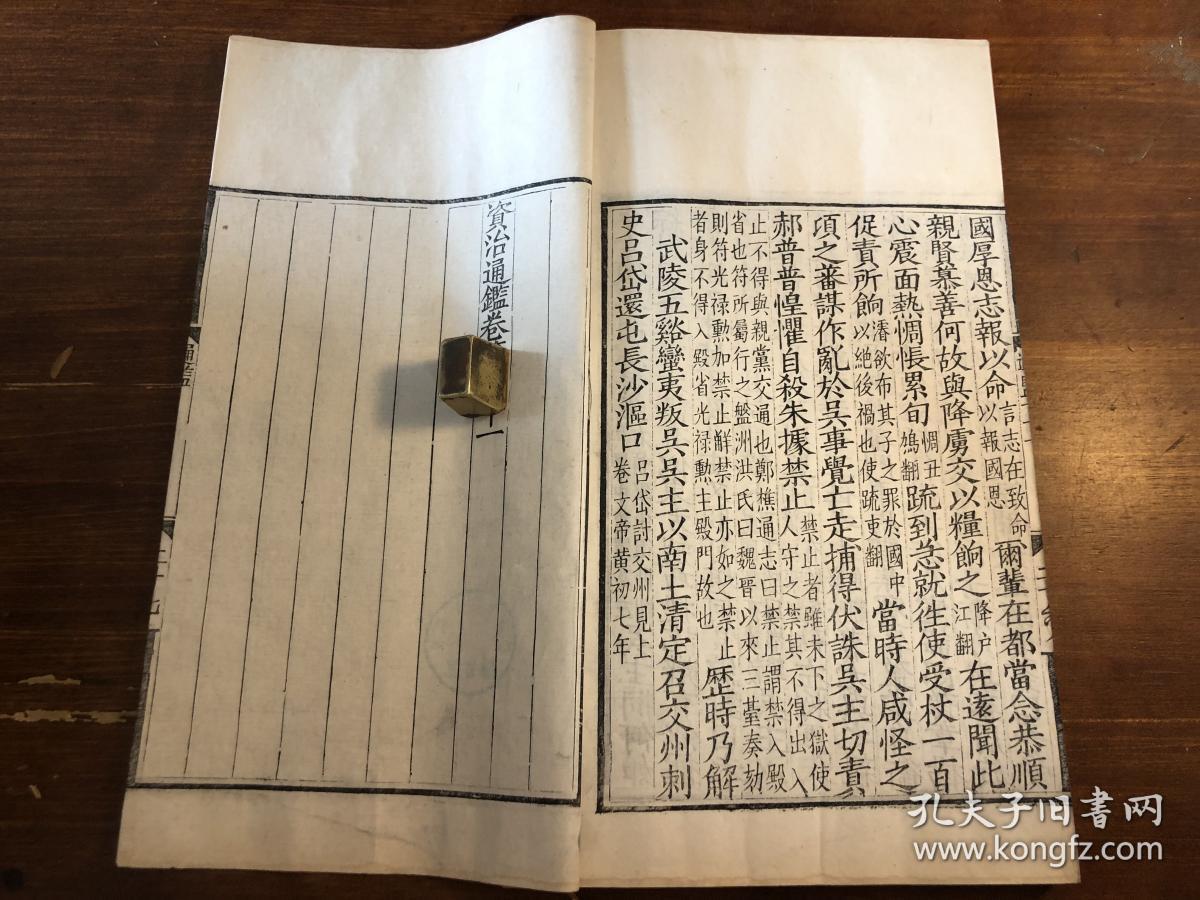 國厚恩志報以命言志在致命以報國恩爾輩在都當念恭順
親賢慕善何故與降虜交以糧餉之降户江翻在逺聞此
心震面熱惆悵累旬惆丑鳩翻疏到急就徃使受杖一百
促責所餉濬欲布其子之罪於國中以絶後禍也使疏吏翻當時人咸怪之
頃之蕃謀作亂於吳事覺亡走捕得伏誅吳主切責
郝普普惶懼自殺朱據禁止禁止者雖未下之獄使人守之禁其不得出入
止不得與親黨交通也鄭樵通志曰禁止謂禁入殿
省也符所屬行之盤洲洪氏曰魏晉以來三臺奏劾
則符光禄勲加禁止觧禁止亦如之禁止
者身不得入殿省光禄勲主殿門故也歴時乃解
武陵五谿蠻夷叛吳吳主以南土清定召交州刺
史吕岱還屯長沙漚口吕岱討交州見上卷文帝黄初七年
資治通鑑卷
一
通鑑
孔夫子旧书网
www.kongfz.com